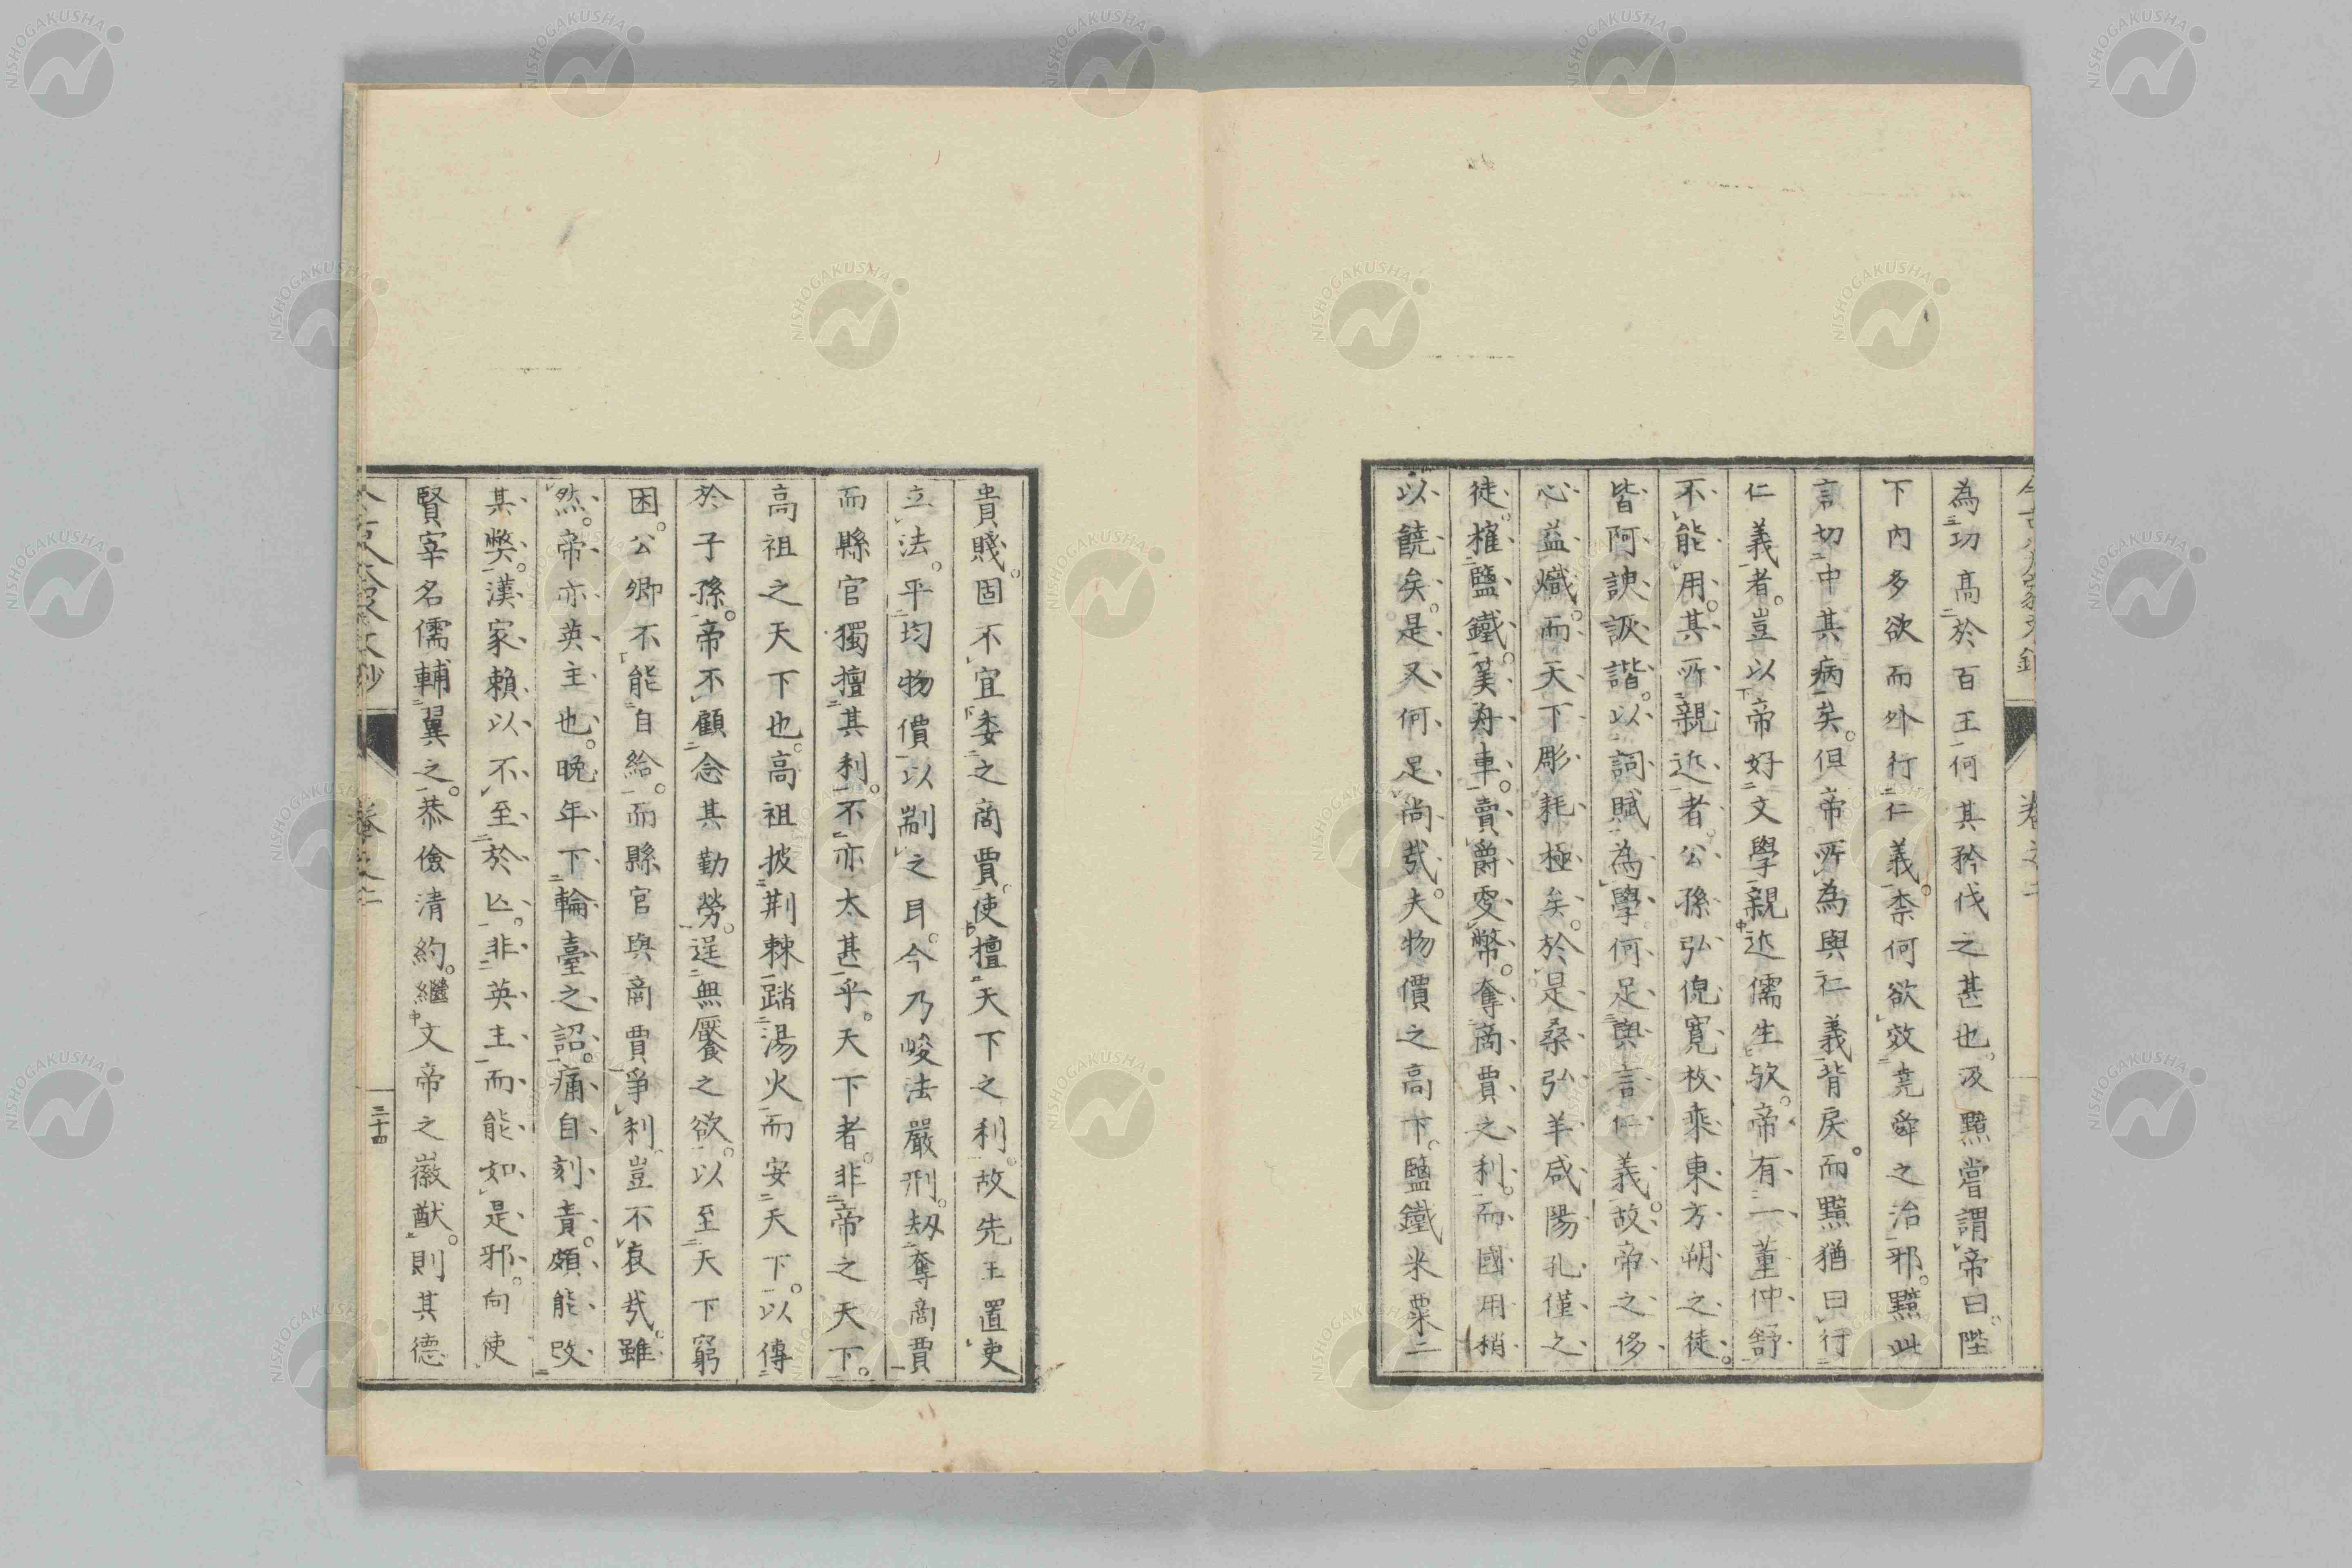 為功高於百王何其矜伐之甚也。汲黯嘗謂帝曰。陛
下內多欲而外行仁義。柰何欲效堯舜之治邪。黯此
言切中其病矣。但帝所為與仁義背戾。而黯猶曰行
仁義者。豈以帝好文學親近儒生歟。帝有一董仲舒
不能用。其所親近者公孫弘倪寬枚乘東方朔之徒。
皆阿諛詼諧。以詞賦為學何足與言仁義。故帝之侈
心益熾。而天下彫耗極矣。於是桑弘羊咸陽孔僅之
徒。榷鹽鐵。筭舟車。賣爵更幣。奪商賈之利。而國用稍
以饒矣。是又何足尚哉。夫物價之高下。鹽鐵米粟二
貴賤。固不宜委之商賈。使擅天下之利。故先王置吏
立法。平均物價以制之耳。今乃峻法嚴刑。刼奪商賈
而縣官獨擅其利。不亦太甚乎。天下者。非帝之天下。
高祖之天下也。高祖披荆棘踏湯火而安天下。以傳
於子孫。帝不顧念其勤勞。逞無饜之欲。以至天下窮
困。公卿不能自給。而縣官與商賈爭利。豈不哀哉。雖
然。帝亦英主也。晚年下輪臺之詔。痛自刻責。頗能改
其弊。漢家賴以不至於亾。非英主而能如是邪。向使
賢宰名儒輔翼之。恭儉清約。繼文帝之徽猷。則其德
卷之二
三十四
NISHOGAKUSHA